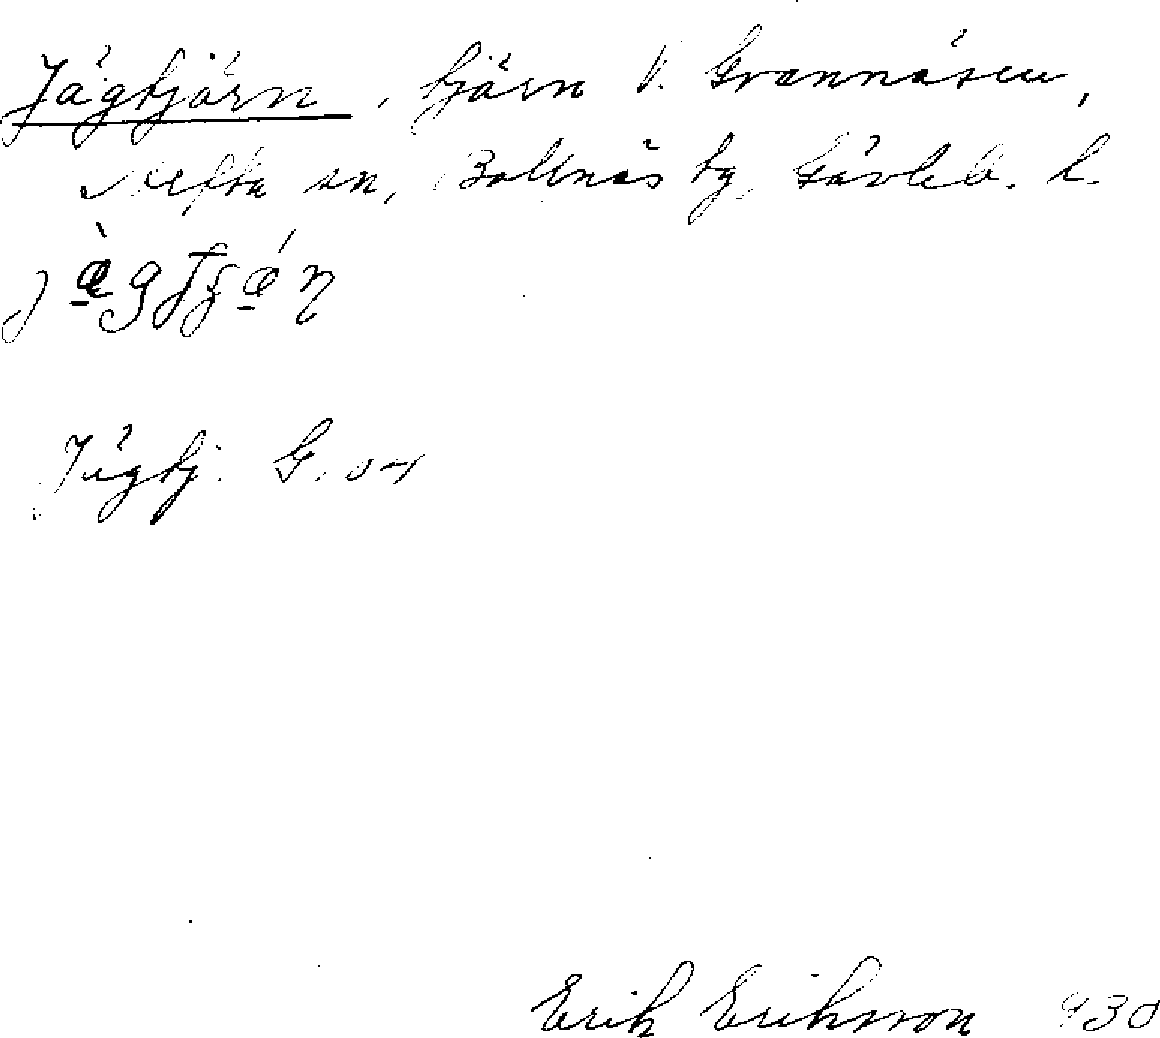 Jägtjärn, tjärn V. Grannäsen,
Alfta sn, Bollnäs tg, Gävleb. l.
Jägtj. G. o-x
Erik Eriksson 930